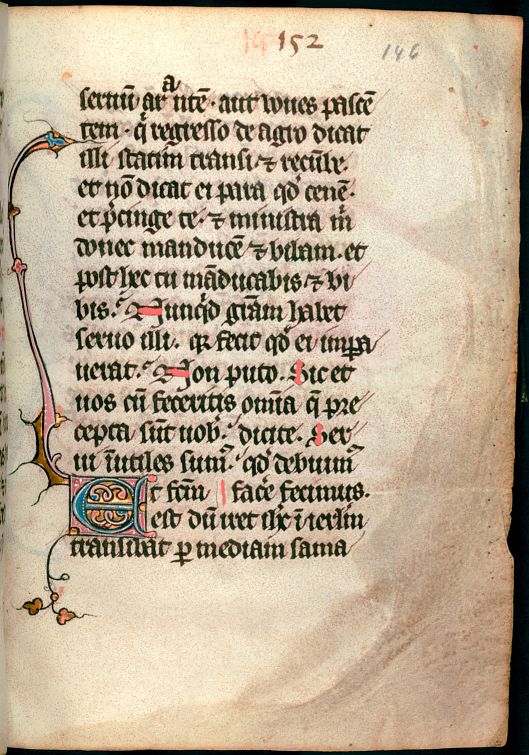 152
146
seruū arātē · aut boues pascē
tem · q̄ regresso de agro dicat
illi statim transi ⁊ recūbe.
et nō dicat ei para qd̄ cenē ·
et p̄cinge te · ⁊ ministra m̄
donec manducē ⁊ bibam · et
post hec tu māducabis ⁊ bi
bis. Nunqd̄ grām habet
seruo illi . qr fecit qd̄ ei impa
uerat. Non puto. Sic et
uos cū feceritis om̄ia q̄ pre
cepta sūt uob. dicite. Ser
ui īutiles sum. qd̄ debuim
t fcm̄ face fecimus.
Est dū iret ihc ī ierlm
transibat p mediam sama